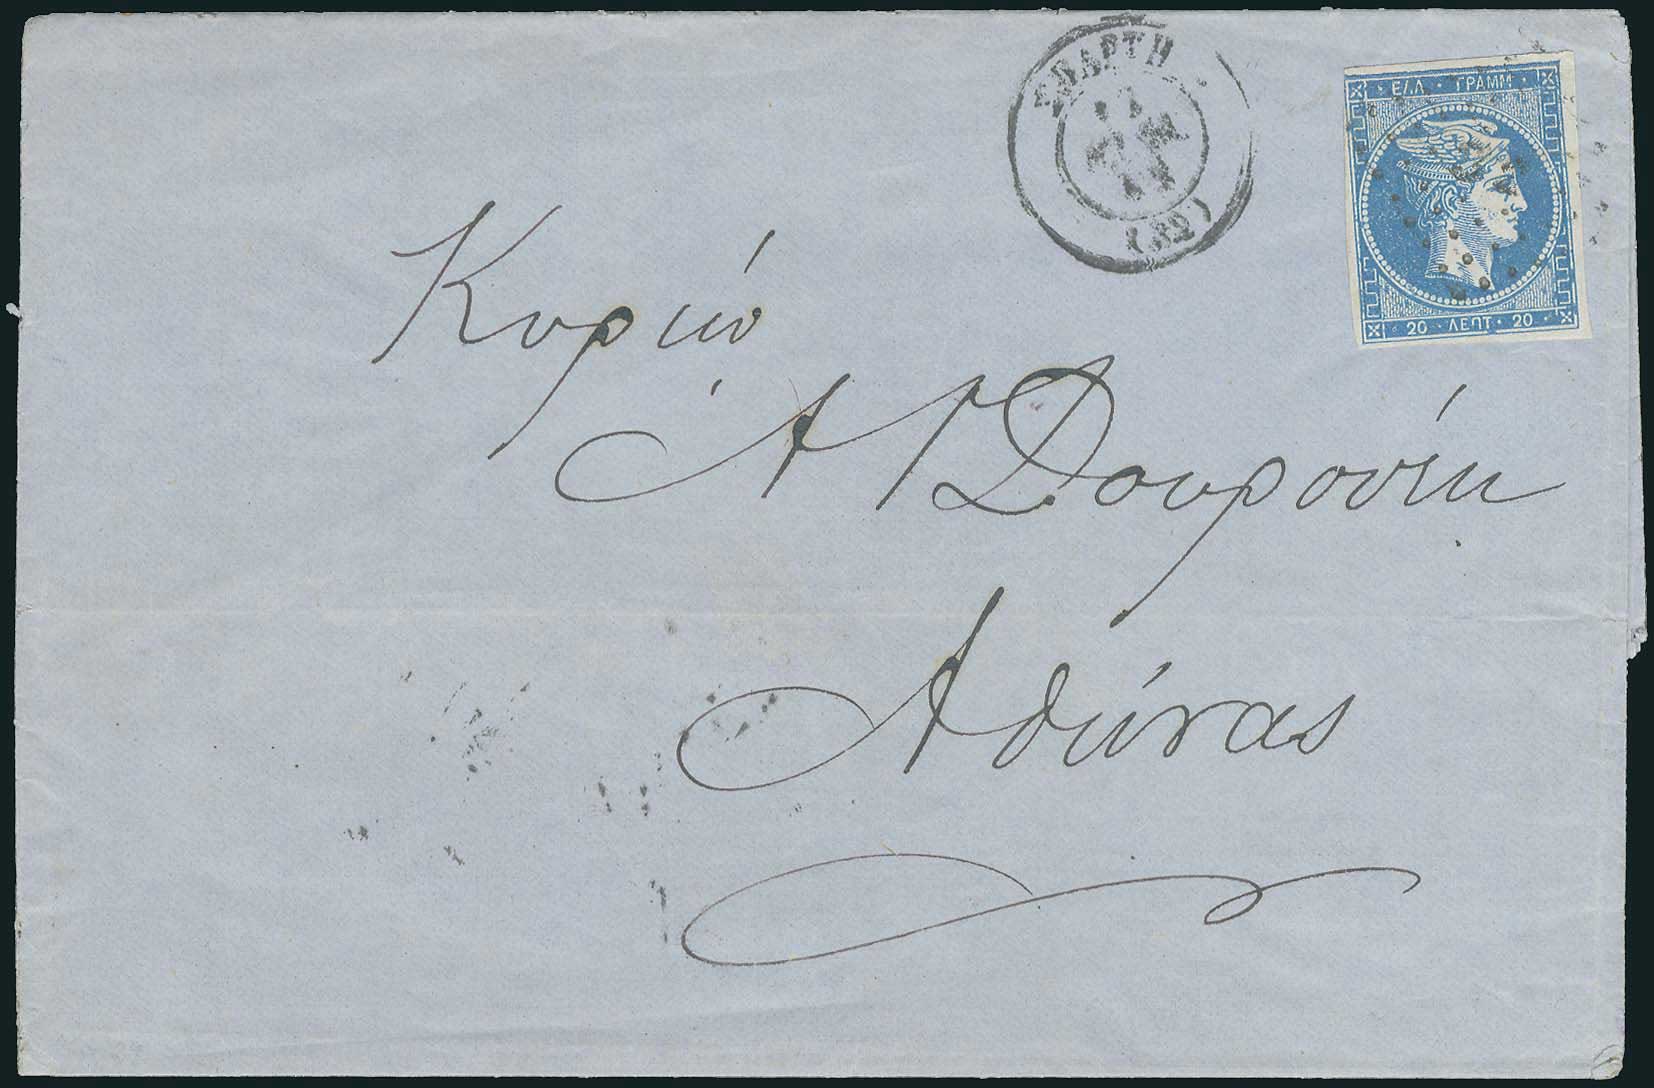 ΣΠΑΡΤΗ
(32)
ΕΛΛ · ΓΡΑΜΜ
20 · ΛΕΠΤ · 20
Κυριῳ
Ἀ Γ Δουρούτη
Ἀθήνας